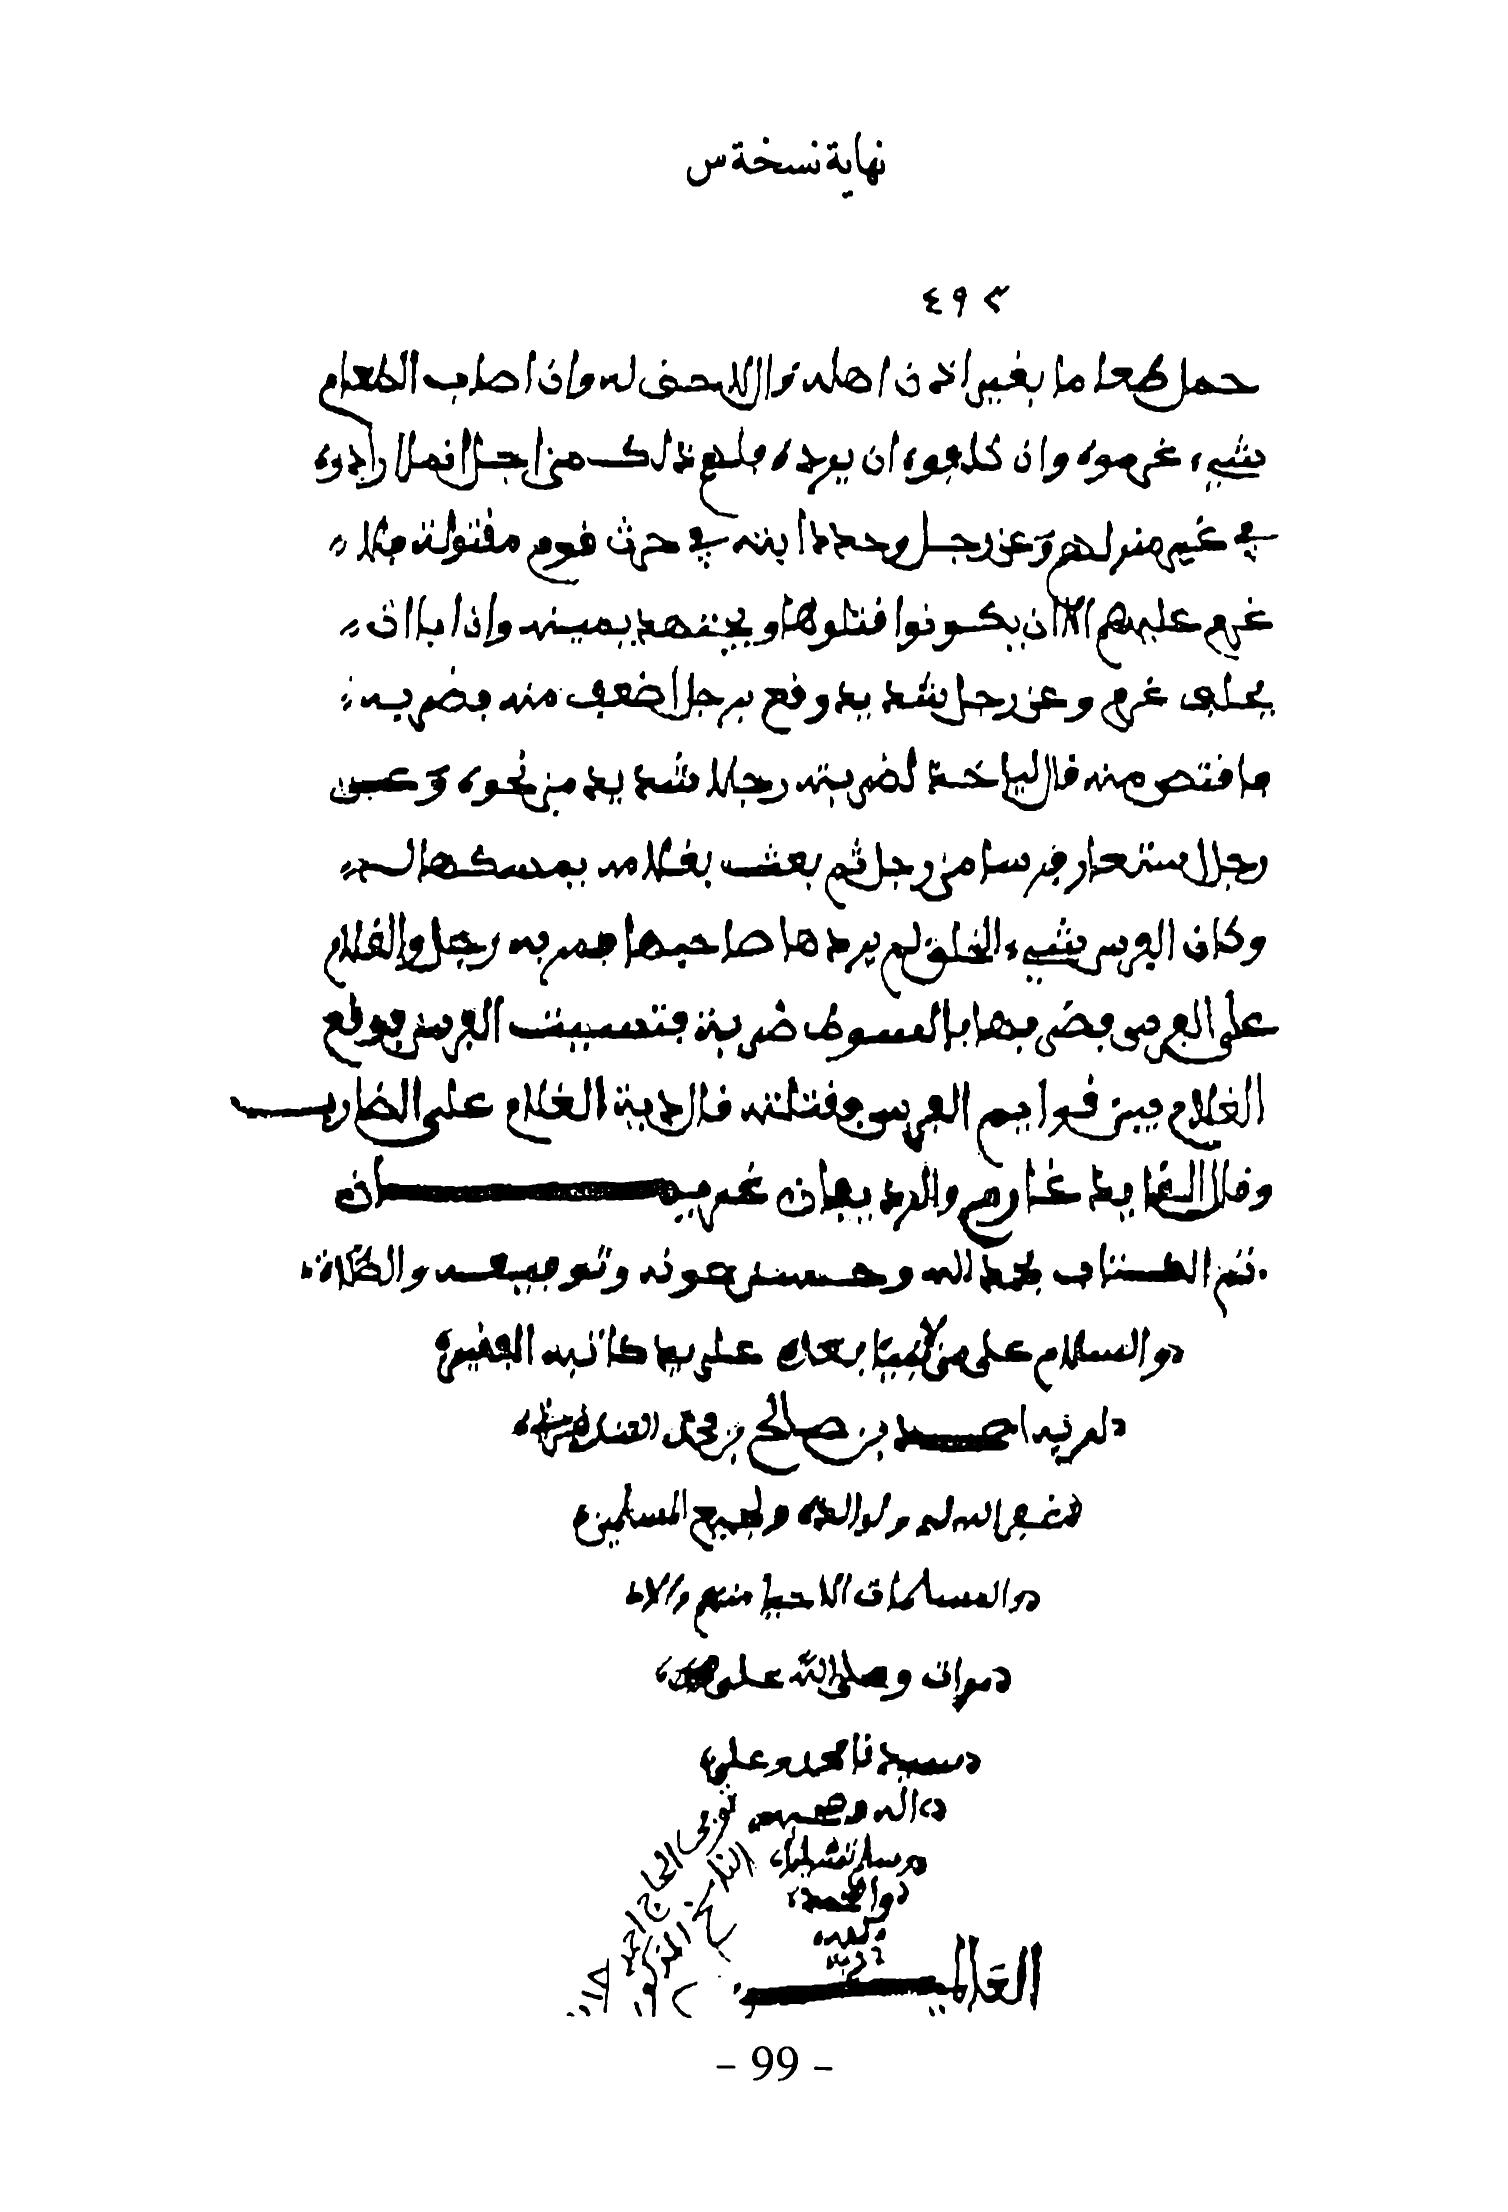 نهاية نسخة س
٤٩٣
حمل طعاما بغير اذن اهله قال لا يحق له وان اصاب الطعام
بشيء غرموه وان كلفوه ان يرده فلهم ذلك من اجل انهم لا راجوه
في غير منزلهم وعن رجل وجد دابته في حرث قوم مقتولة فلا
غرم عليهم الا ان يكونوا قتلوها ويجتهد يمينه وان ابا ان
يحلف غرم وعن رجل شديد وقع برجل اضعف منه فضربه
فاقتص منه قال ياخذ لضربته رجلا شديد من نحوه وعن
رجل استعار فرسا من رجل ثم بعث بغلامه يمسكها له
وكان الفرس بشيء الخلق لم يردها صاحبها فمر به رجل والغلام
على الفرس فضربها بالسوط ضربة فتسيبت الفرس فوقع
الغلام بين قوايم الفرس فقتلته قال دية الغلام على الضارب
وقال القايد غارم والرديفان غريمان
تم الكتاب بحمد الله وحسن عونه وتوفيقه والصلاة
والسلام على من لا نبيا بعده على يد كاتبه الفقير
لربه احمد بن صالح بن محمد
غفر الله له ولوالديه ولجميع المسلمين
والمسلمات الاحيا منهم والا
موات وصلى الله على
سيدنا محمد وعلى
اله وصحبه
وسلم تسليما
والحمد
لله
رب
العالمين
توفي الحاج احمد
الناسخ المذكور
- 99 -